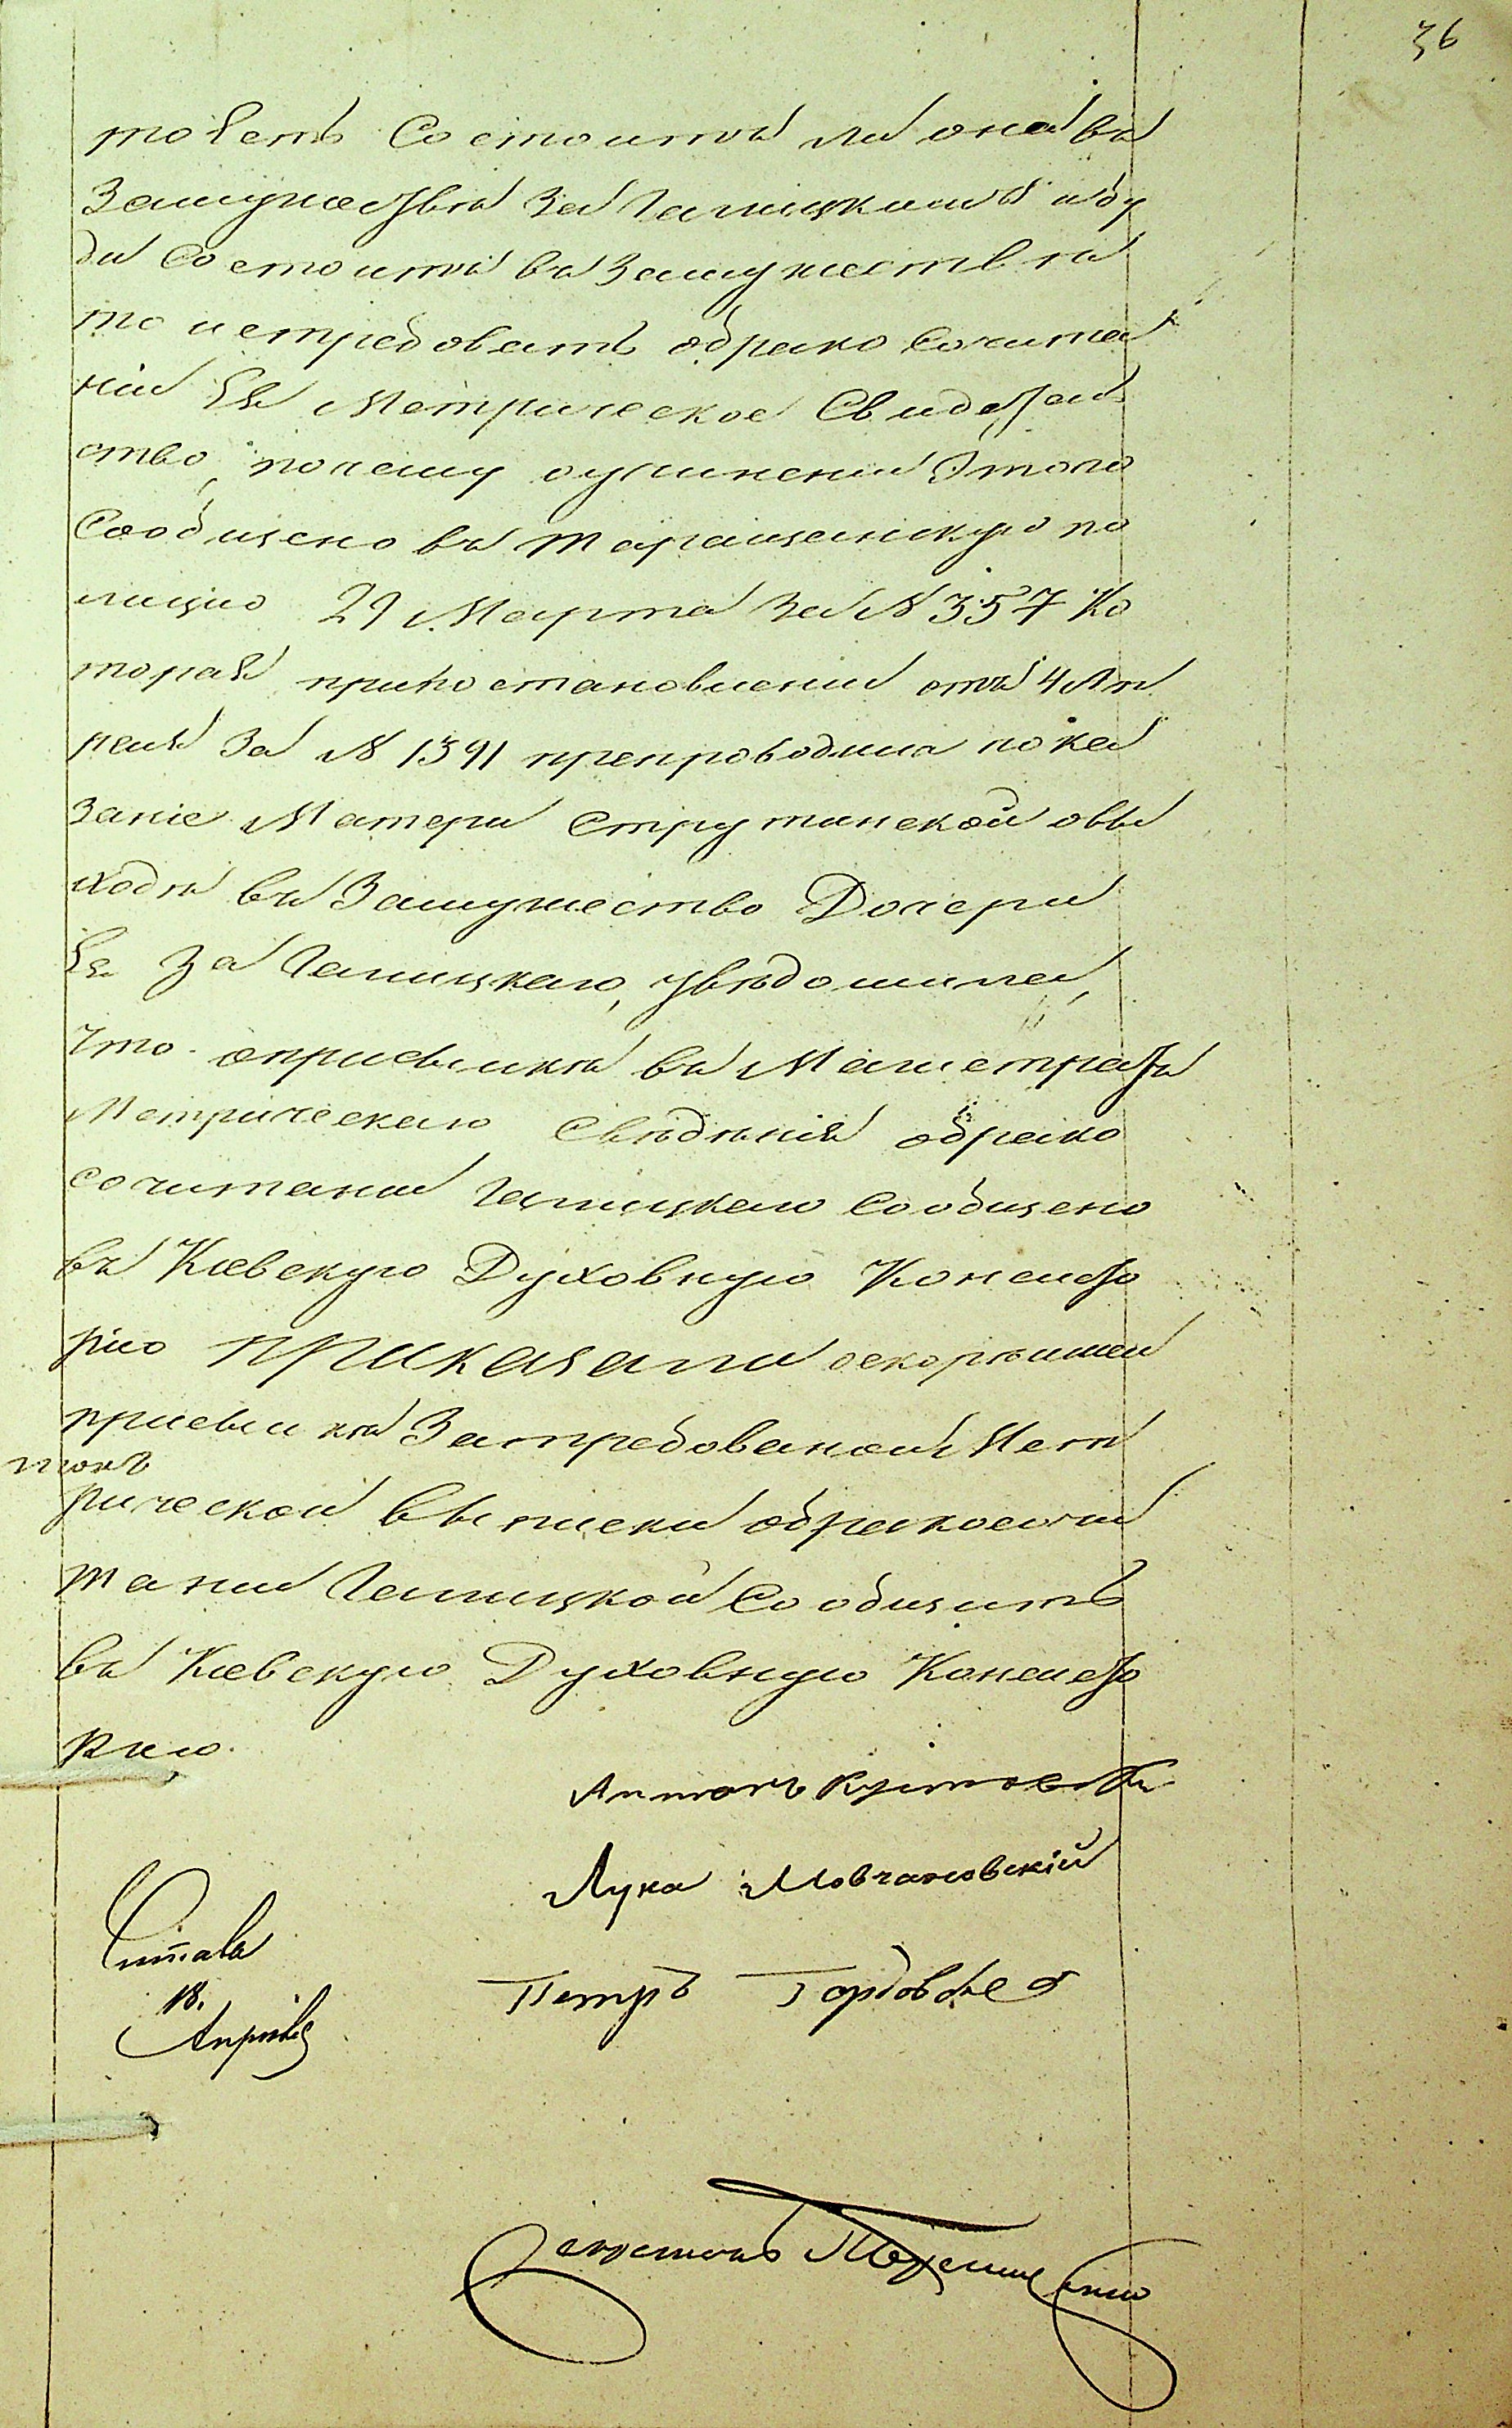 36
то есть Состоитъ ли она въ
Замужествѣ За Галицкимъ и бу
ди Состоитъ въ Замужествѣ
то истребовать обрако Сочита
ніи Ея Метрическое Свидетель
ство, почему о учинении Этого
Сообщено въ Таращанскую по
лицію 29 Марта За № 357 Ко
торая при постановлении отъ 4 Ап
реля За № 1391 препроводила пока
заніе Матери Струтинской овы
ходѣ въ Замужество Дочери
Ея За Галицкаго, увѣдомила,
Что оприсылкѣ въ Магистратъ
Метрическаго Свѣдѣнія обрако
сочитании Галицкаго Сообщено
въ Киевскую Духовную Консисто
рію Приказали оскорѣйшей
присылкѣ Затребованной Мет
рической Выписки обракосочи
тании Галицкой Сообщить
въ Киевскую Духовную Консисто
рию.
Антонъ
Лука Мовчановскій
Читалъ
18.
Апрѣля
Петръ
Секретарь